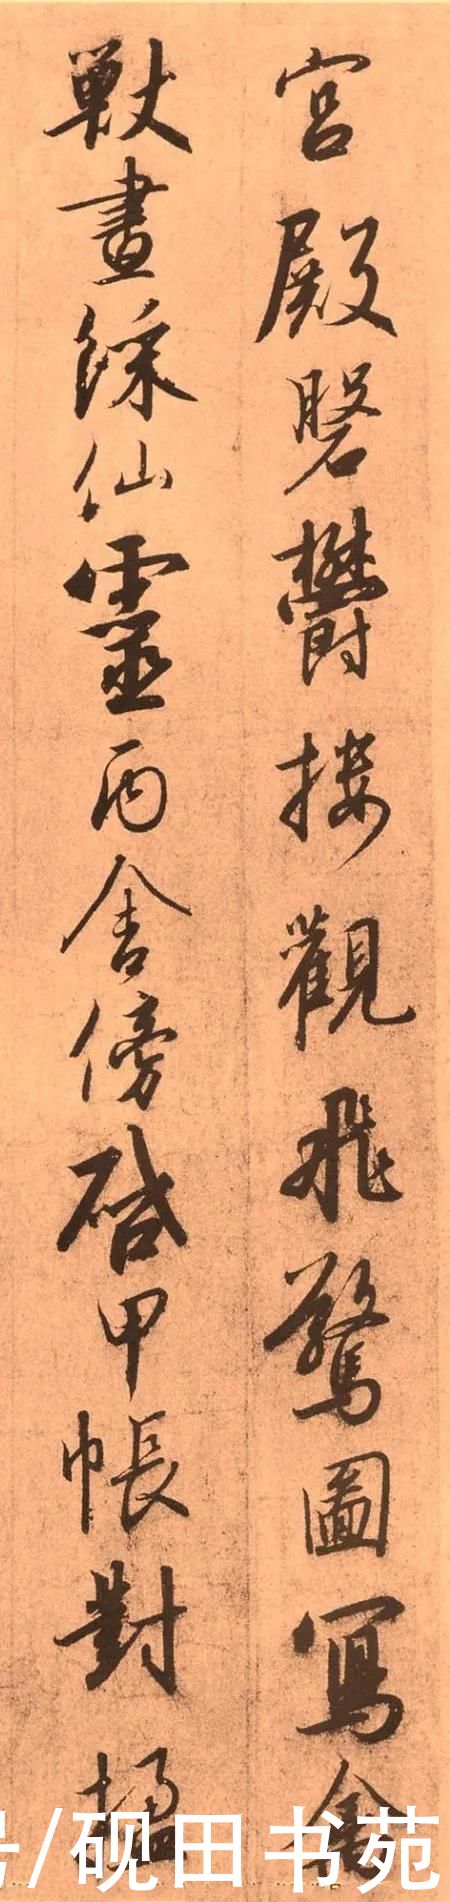 宮殿磐欝楼觀飛驚圖寫禽
獸畫綵仙靈丙舍傍啓甲帳對楹
号/砚田书苑